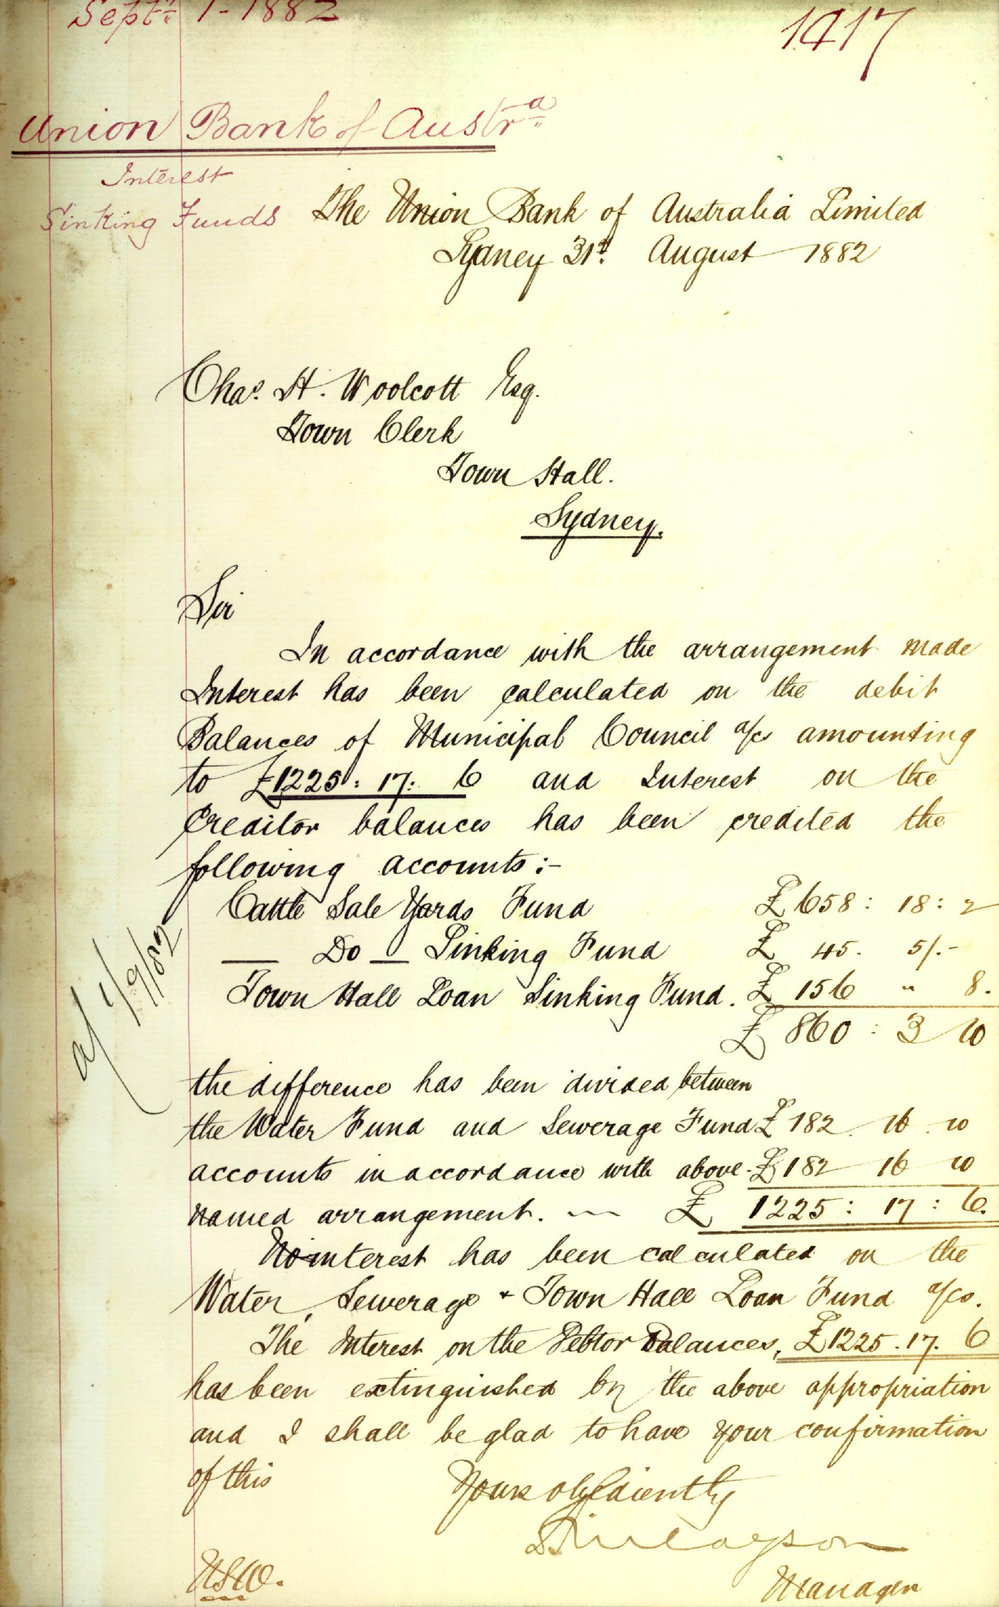 Septr 1 - 1882
1417
Union Bank of Austra
Interest
Sinking Funds
The Union Bank of Australia Limited
Sydney 31st August 1882
Chas. H. Woolcott Esq.
Town Clerk
Town Hall.
Sydney.
Sir
In accordance with the arrangement made
Interest has been calculated on the debit
Balances of Municipal Council a/c amounting
to £1225: 17: 6 and Interest on the
Creditor balances has been credited the
following accounts:-
Cattle Sale Yards Fund £658: 18: 2
— Do — Sinking Fund £ 45. 5/.-
Town Hall Loan Sinking Fund. £ 156 " 8.
£ 860: 3 10
1/9/82
the difference has been divided between
the Water Fund and Sewerage Fund £ 182. 16. 10
accounts in accordance with above- £ 182 16 10
named arrangement. — £ 1225: 17: 6.
No interest has been calculated on the
Water, Sewerage + Town Hall Loan Fund a/cs.
The Interest on the Debtor Balances, £1225. 17. 6
has been extinguished by the above appropriation
and I shall be glad to have your confirmation
of this
Yours obediently
Manager